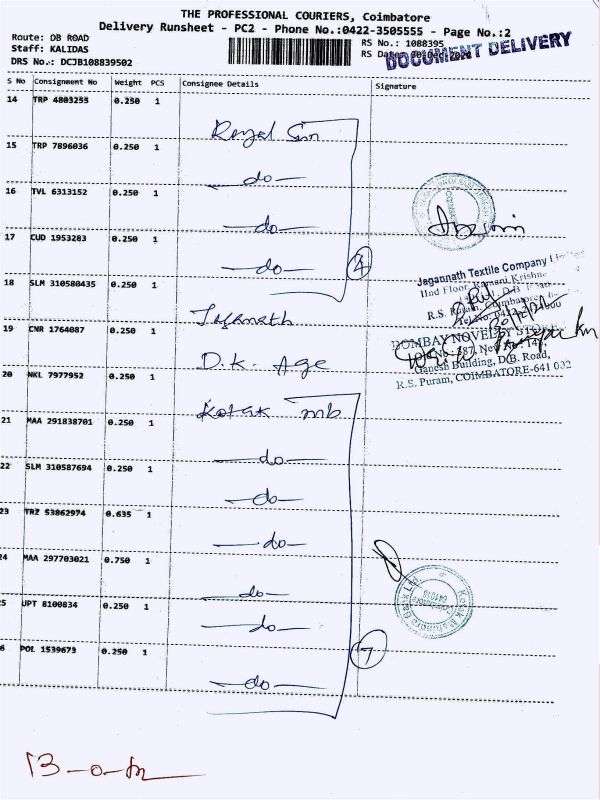 THE PROFESSIONAL COURIERS, Coimbatore
Delivery Runsheet - PC2 - Phone No.:0422-3505555 - Page No.:2
Route: DB ROAD
RS No.: 1088395
Staff: KALIDAS
RS Date:
DOCUMENT DELIVERY
DRS No.: DCJB108839502
S No Consignment No Weight PCS Consignee Details Signature
14 TRP 4803255 0.250 1 Royal Sun
15 TRP 7896036 0.250 1 —do—
16 TVL 6313152 0.250 1 —do—
17 CUD 1953283 0.250 1 —do— 4
18 SLM 310580435 0.250 1 Jaganath
Jagannath Textile Company
IInd Floor, Ramani Krishna
R.S. Puram, Coimbatore
19 CNR 1764087 0.250 1 D.K. Age
BOMBAY NOVELTY STORE
Ganesh Building, D.B. Road,
R.S. Puram, COIMBATORE-641 002
20 NKL 7977952 0.250 1 Kotak mb
21 MAA 291838701 0.250 1 —do—
22 SLM 310587694 0.250 1 —do—
23 TRZ 53862974 0.635 1 —do—
24 MAA 297703021 0.750 1 —do—
5 JPT 8100834 0.250 1 —do—
6 POL 1539673 0.250 1 —do— 7
Kotak Mahindra
Coimbatore